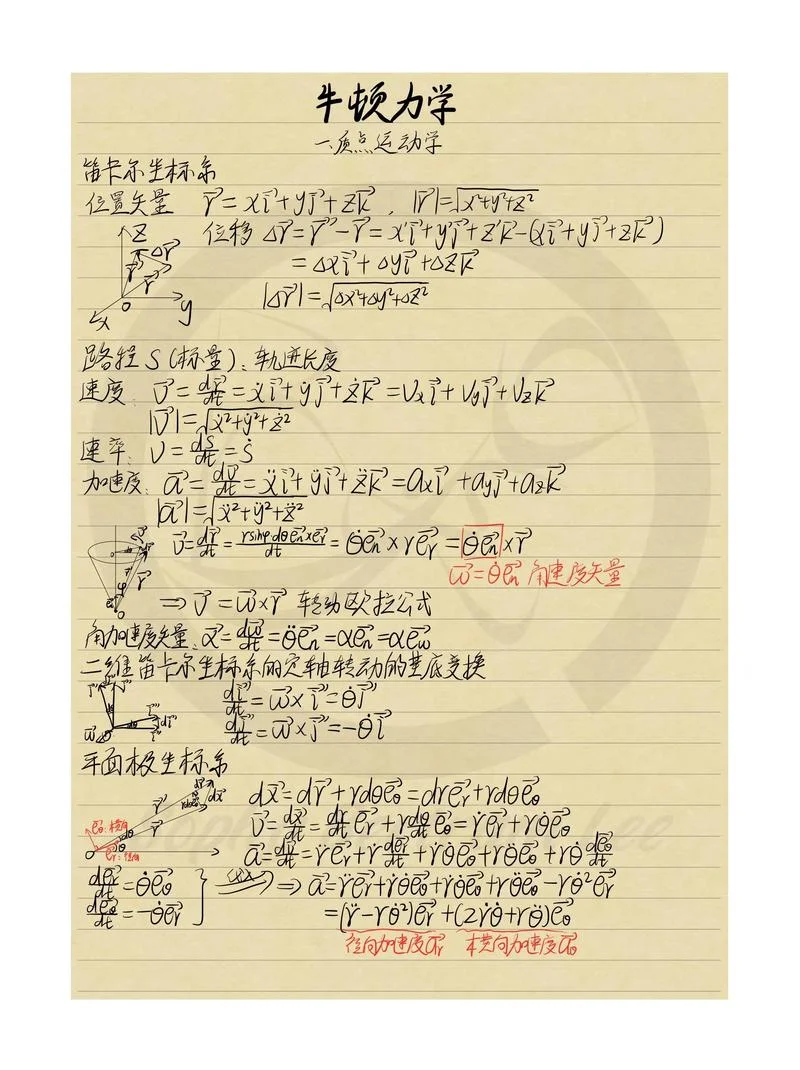 牛顿力学
一.质点运动学
笛卡尔坐标系
位置矢量 r⃗=xi⃗+yj⃗+zk⃗ , |r⃗|=√(x²+y²+z²)
位移 Δr⃗=r⃗'-r⃗=x'i⃗+y'j⃗+z'k⃗-(xi⃗+yj⃗+zk⃗)
=Δxi⃗+Δyj⃗+Δzk⃗
|Δr⃗|=√(Δx²+Δy²+Δz²)
z Δr⃗ r⃗' r⃗ o y x
路程 S(标量):轨迹长度
速度: v⃗=dr⃗/dt=ẋi⃗+ẏj⃗+żk⃗=Vxi⃗+Vyj⃗+Vzk⃗
|v⃗|=√(ẋ²+ẏ²+ż²)
速率: v=ds/dt=ṡ
加速度: a⃗=dv⃗/dt=ẍi⃗+ÿj⃗+z̈k⃗=axi⃗+ayj⃗+azk⃗
|a⃗|=√(ẍ²+ÿ²+z̈²)
v⃗=dr⃗/dt=rsinφdθe⃗n×e⃗r/dt=θ̇e⃗n×re⃗r=θ̇e⃗n×r⃗
ω⃗=θ̇e⃗n 角速度矢量
⇒v⃗=ω⃗×r⃗ 转动欧拉公式
角加速度矢量: α⃗=dω⃗/dt=θ̈e⃗n=αe⃗n=αe⃗ω
二维笛卡尔坐标系的定轴转动的基底变换
di⃗/dt=ω⃗×i⃗=θ̇j⃗
dj⃗/dt=ω⃗×j⃗=-θ̇i⃗
平面极坐标系
dx⃗=dr⃗+rdθe⃗θ=dre⃗r+rdθe⃗θ
v⃗=dx⃗/dt=dr/dt e⃗r+rdθ/dt e⃗θ=ṙe⃗r+rθ̇e⃗θ
e⃗θ:横向
e⃗r:径向
a⃗=dv⃗/dt=r̈e⃗r+ṙde⃗r/dt+ṙθ̇e⃗θ+rθ̈e⃗θ+rθ̇de⃗θ/dt
de⃗r/dt=θ̇e⃗θ
de⃗θ/dt=-θ̇e⃗r
⇒a⃗=r̈e⃗r+ṙθ̇e⃗θ+ṙθ̇e⃗θ+rθ̈e⃗θ-rθ̇²e⃗r
=(r̈-rθ̇²)e⃗r+(2ṙθ̇+rθ̈)e⃗θ
径向加速度a⃗r 横向加速度a⃗θ